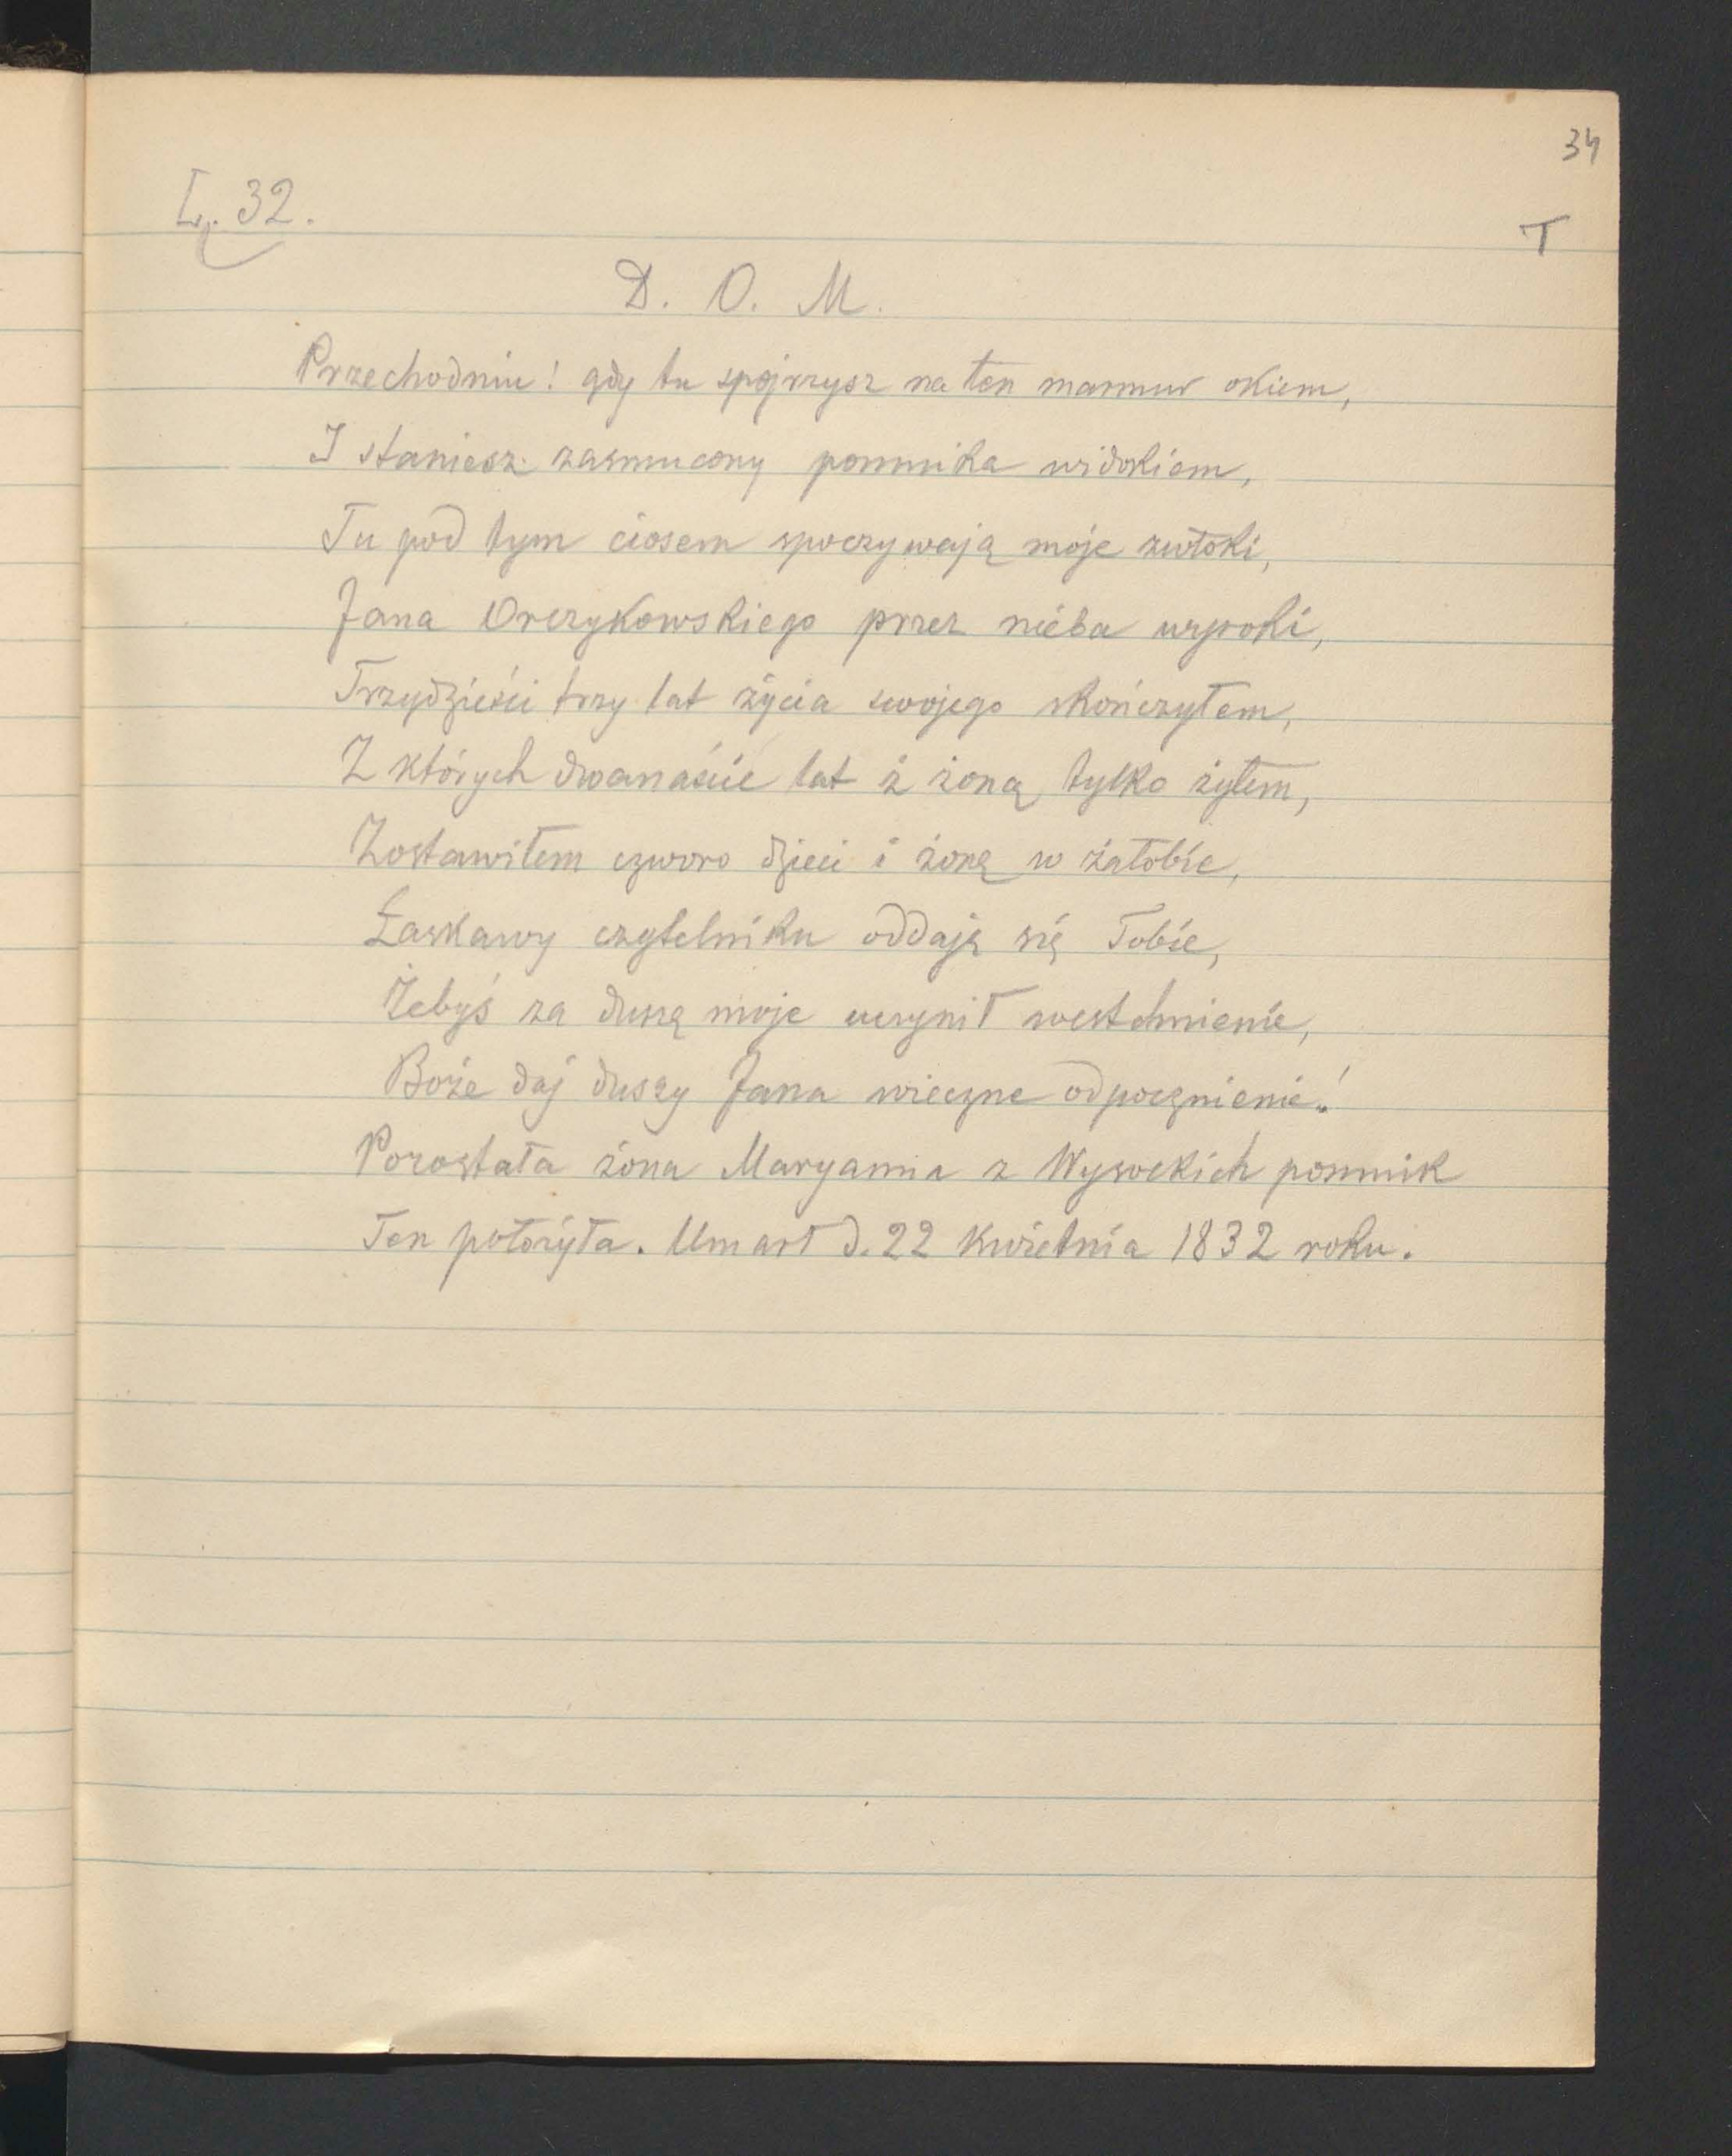 34
L. 32.
T
D. O. M.
Przechodniu! gdy tu spójrzysz na ten marmur okiem,
I staniesz zasmucony pomnika widokiem,
Tu pod tym ciosem spoczywają moje zwłoki,
Jana Orczykowskiego przez nieba wyroki,
Trzydzieści trzy lat życia swojego skończyłem,
Z których dwanaście lat z żoną tylko żyłem,
Zostawiłem czworo dzieci i żonę w żałobie,
Łaskawy czytelniku oddaję się Tobie,
Żebyś za duszę moje uczynił westchnienie,
Boże daj duszy Jana wieczne odpocznienie!
Pozostała żona Maryanna z Wysockich pomnik
Ten położyła. Umarł d. 22 Kwietnia 1832 roku.